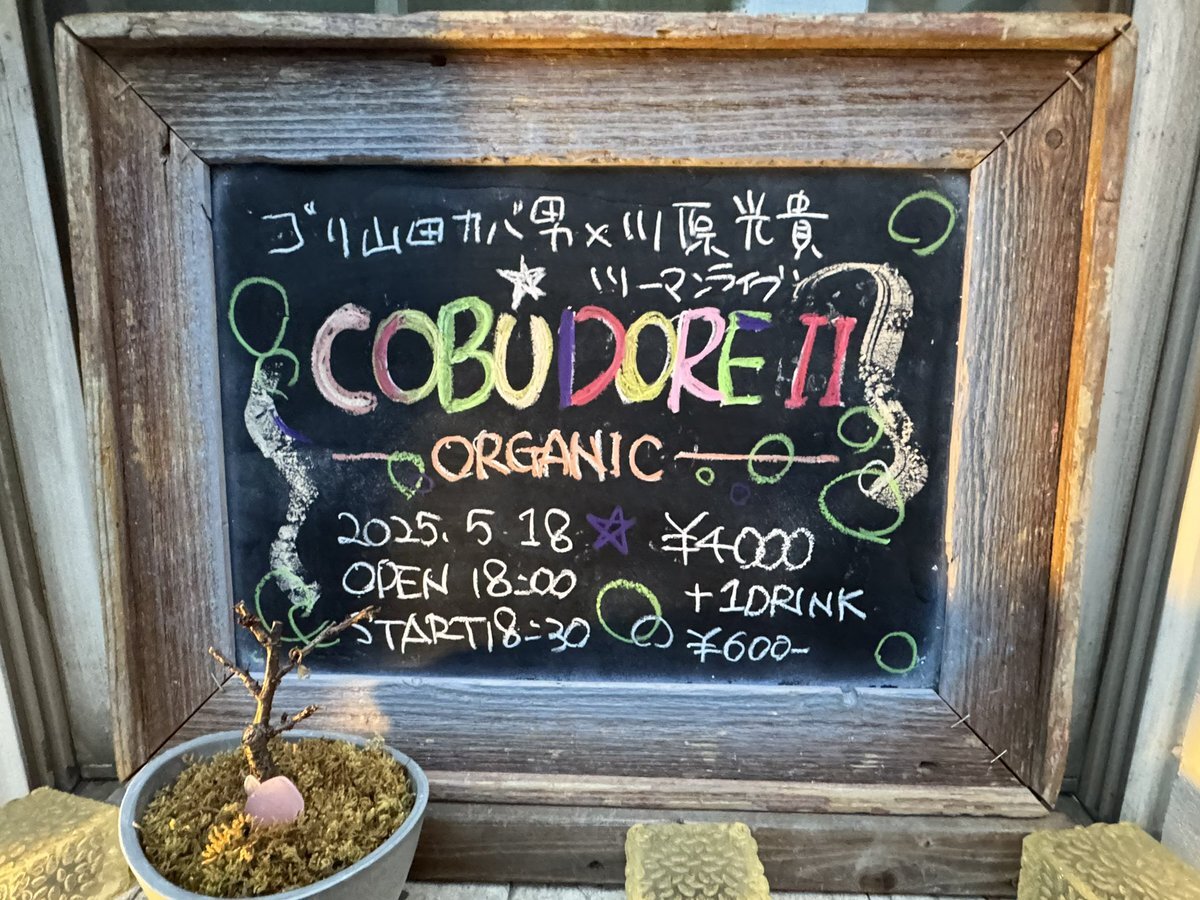 ゴリ山田カバ男×川原光貴
ツーマンライブ
COBUDORE II
ORGANIC
2025.5.18 ¥4000
OPEN 18:00 +1DRINK
START18:30 ¥600-